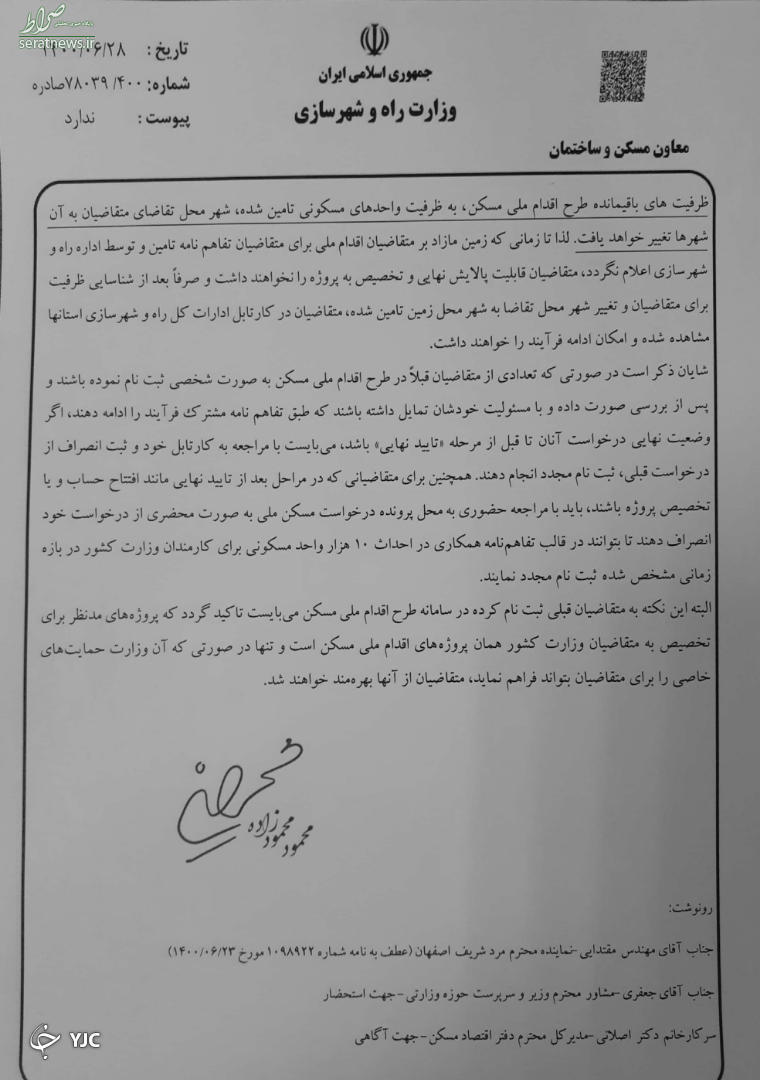 صراط
seratnews.ir
جمهوری اسلامی ایران
وزارت راه و شهرسازی
معاون مسکن و ساختمان
تاریخ : ۱۴۰۰/۰۶/۲۸
شماره: ۷۸۰۳۹/۴۰۰صادره
پیوست : ندارد
ظرفیت های باقیمانده طرح اقدام ملی مسکن، به ظرفیت واحدهای مسکونی تامین شده، شهر محل تقاضای متقاضیان به آن
شهرها تغییر خواهد یافت. لذا تا زمانی که زمین مازاد بر متقاضیان اقدام ملی برای متقاضیان تفاهم نامه تامین و توسط اداره راه و
شهرسازی اعلام نگردد، متقاضیان قابلیت پالایش نهایی و تخصیص به پروژه را نخواهند داشت و صرفاً بعد از شناسایی ظرفیت
برای متقاضیان و تغییر شهر محل تقاضا به شهر محل زمین تامین شده، متقاضیان در کارتابل ادارات کل راه و شهرسازی استانها
مشاهده شده و امکان ادامه فرآیند را خواهند داشت.
شایان ذکر است در صورتی که تعدادی از متقاضیان قبلاً در طرح اقدام ملی مسکن به صورت شخصی ثبت نام نموده باشند و
پس از بررسی صورت داده و با مسئولیت خودشان تمایل داشته باشند که طبق تفاهم نامه مشترک فرآیند را ادامه دهند، اگر
وضعیت نهایی درخواست آنان تا قبل از مرحله «تایید نهایی» باشد، می‌بایست با مراجعه به کارتابل خود و ثبت انصراف از
درخواست قبلی، ثبت نام مجدد انجام دهند. همچنین برای متقاضیانی که در مراحل بعد از تایید نهایی مانند افتتاح حساب و یا
تخصیص پروژه باشند، باید با مراجعه حضوری به محل پرونده درخواست مسکن ملی به صورت محضری از درخواست خود
انصراف دهند تا بتوانند در قالب تفاهم‌نامه همکاری در احداث ۱۰ هزار واحد مسکونی برای کارمندان وزارت کشور در بازه
زمانی مشخص شده ثبت نام مجدد نمایند.
البته این نکته به متقاضیان قبلی ثبت نام کرده در سامانه طرح اقدام ملی مسکن می‌بایست تاکید گردد که پروژه‌های مدنظر برای
تخصیص به متقاضیان وزارت کشور همان پروژه‌های اقدام ملی مسکن است و تنها در صورتی که آن وزارت حمایت‌های
خاصی را برای متقاضیان بتواند فراهم نماید، متقاضیان از آنها بهره‌مند خواهند شد.
محمود محمودزاده
رونوشت:
جناب آقای مهندس مقتدایی -نماینده محترم مرد شریف اصفهان (عطف به نامه شماره ۱۰۹۸۹۲۲ مورخ ۱۴۰۰/۰۶/۲۳)
جناب آقای جعفری -مشاور محترم وزیر و سرپرست حوزه وزارتی -جهت استحضار
سرکارخانم دکتر اصلانی -مدیرکل محترم دفتر اقتصاد مسکن -جهت آگاهی
YJC